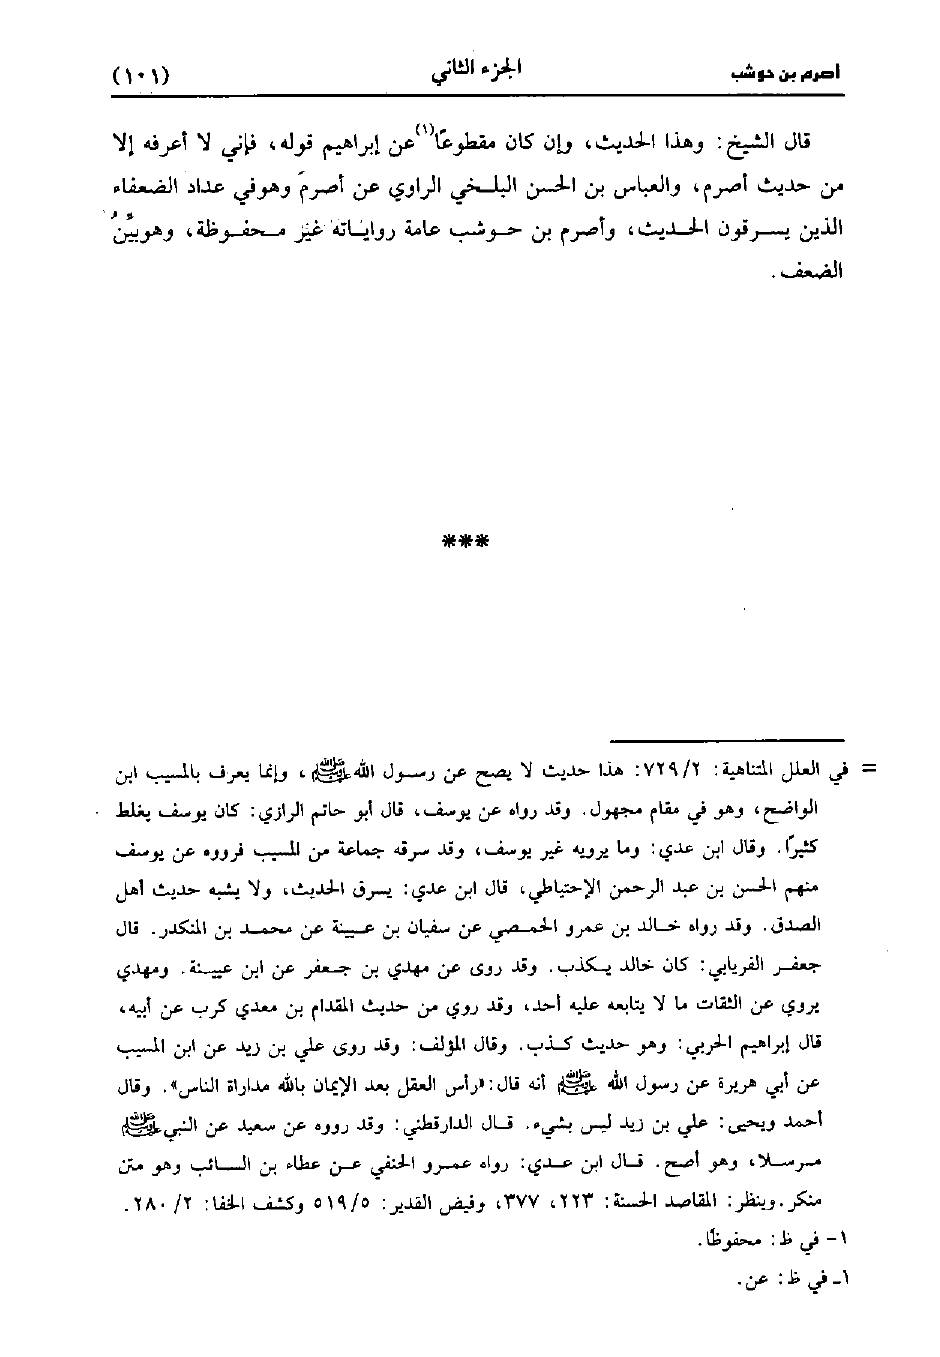 أصرم بن حوشب الجزء الثاني (١٠١)
قال الشيخ: وهذا الحديث، وإن كان مقطوعًا(١)عن إبراهيم قوله، فإني لا أعرفه إلا
من حديث أصرم، والعباس بن الحسن البلخي الراوي عن أصرمَ وهوفي عداد الضعفاء
الذين يسرقون الحديث، وأصرم بن حوشب عامة رواياته غيْر محفوظة، وهوبيِّنُ
الضعف.
***
= في العلل المتناهية: ٧٢٩/٢: هذا حديث لا يصح عن رسول الله ﷺ، وإنما يعرف بالمسيب ابن
الواضح، وهو في مقام مجهول. وقد رواه عن يوسف، قال أبو حاتم الرازي: كان يوسف يغلط
كثيرًا. وقال ابن عدي: وما يرويه غير يوسف، وقد سرقه جماعة من المسيب فرووه عن يوسف
منهم الحسن بن عبد الرحمن الإحتياطي، قال ابن عدي: يسرق الحديث، ولا يشبه حديث أهل
الصدق. وقد رواه خالد بن عمرو الحمصي عن سفيان بن عيينة عن محمد بن المنكدر. قال
جعفر الفريابي: كان خالد يكذب. وقد روى عن مهدي بن جعفر عن ابن عيينة. ومهدي
يروي عن الثقات ما لا يتابعه عليه أحد، وقد روي من حديث المقدام بن معدي كرب عن أبيه،
قال إبراهيم الحربي: وهو حديث كذب. وقال المؤلف: وقد روى علي بن زيد عن ابن المسيب
عن أبي هريرة عن رسول الله ﷺ أنه قال:«رأس العقل بعد الإيمان بالله مداراة الناس». وقال
أحمد ويحيى: علي بن زيد ليس بشيء. قال الدارقطني: وقد رووه عن سعيد عن النبي ﷺ
مرسلا، وهو أصح. قال ابن عدي: رواه عمرو الحنفي عن عطاء بن السائب وهو متن
منكر.وينظر: المقاصد الحسنة: ٢٢٣، ٣٧٧، وفيض القدير: ٥١٩/٥ وكشف الخفا: ٢٨٠/٢.
١- في ظ: محفوظًا.
١- في ظ: عن.